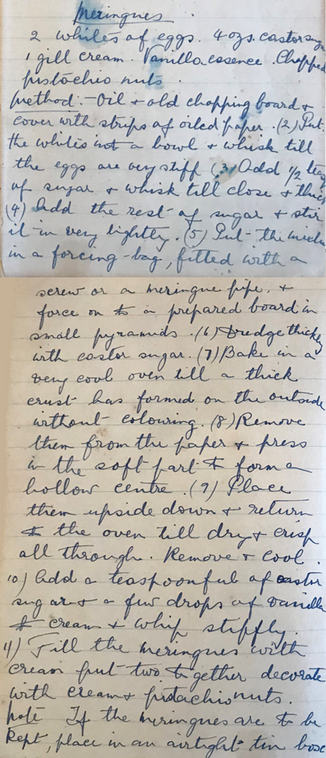 Meringues
2 whites of eggs. 4 ozs. castor sug
1 gill cream. Vanilla essence. Chopped
pistachio nuts.
Method:- Oil & old chopping board &
cover with strips of oiled paper. (2) Put
the whites into a bowl & whisk till
the eggs are very stiff (3) Add ½
of sugar & whisk till close & thick
(4) Add the rest of sugar & stir
it in very lightly. (5) Put the
in a forcing-bag, fitted with a
screw or a meringue pipe, &
force on to a prepared board in
small pyramids. (6) Dredge thickly
with castor sugar. (7) Bake in a
very cool oven till a thick
crust has formed on the outside
without colouring. (8) Remove
them from the paper & press
in the soft part to form a
hollow centre. (9) Place
them upside down & return
to the oven till dry & crisp
all through. Remove & cool.
10) Add a teaspoonful of castor
sugar & a few drops of vanilla
to cream & whip stiffly.
11) Fill the meringues with
cream put two together decorate
with cream & pistachio nuts.
Note If the meringues are to be
kept, place in an airtight tin box